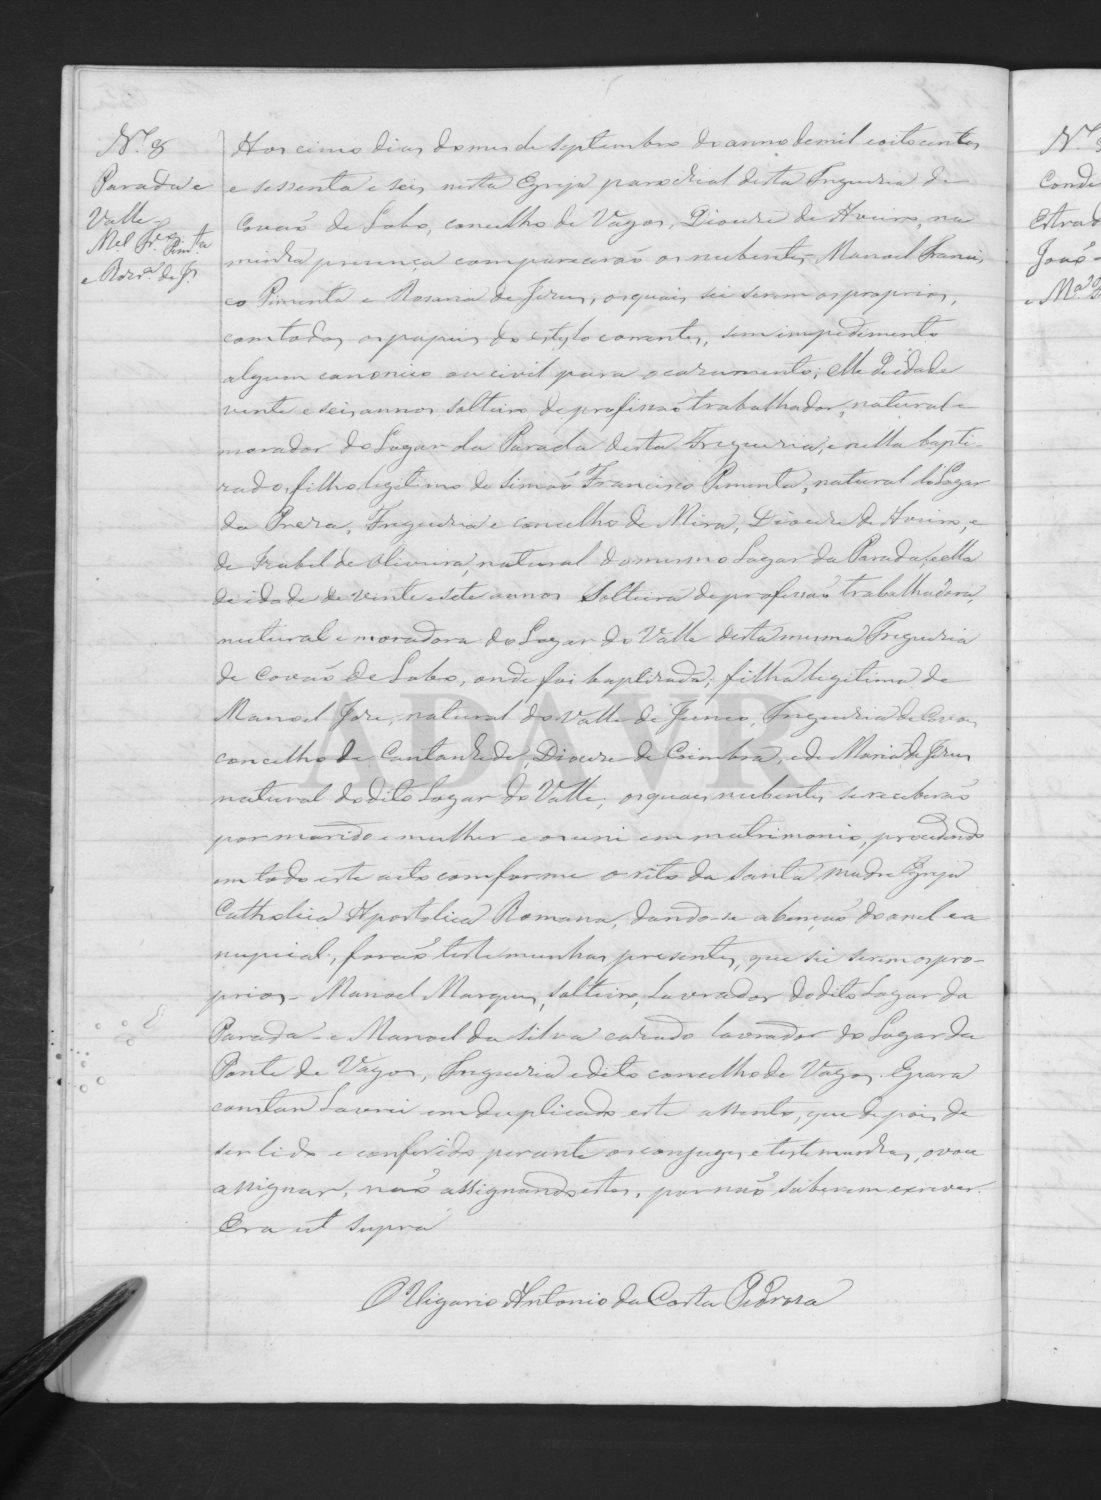 N.º 8
Parada e
Valle
M.el Fr.co Pim.ta
e Roza.ª de J.
Aos cinco dias do mes de septembro do anno de mil e oitocentos
e sessenta e seis nesta Egreja parochial desta Freguezia de
Covaõ de Lobo, concelho de Vagos, Diocese de Aveiro, na
minha presença compareceraõ os nubentes Manoel Francis
co Pimenta e Rosaria de Jesus, os quais sei serem os proprios,
com todos os papeis do estylo correntes, sem impedimento
algum canonico ou civil para o cazamento; elle de idade
vinte e seis annos solteiro de profissaõ trabalhador, natural e
morador do Lugar da Parada desta Freguezia, e nella bapti-
zado, filho legitimo de Simaõ Francisco Pimenta, natural do Lugar
da Preza, Freguezia e concelho de Mira, Diocese de Aveiro, e
de Izabel de Oliveira, natural do mesmo Lugar da Parada, e ella
de idade de vinte e sete annos Solteira de profissaõ trabalhadora,
natural e moradora do Lugar do Valle desta mesma Freguezia
de Covaõ de Lobo, onde foi baptizada, filha legitima de
Manoel Joze, natural do Valle de Junco, Freguezia de Covões
concelho de Cantanhede, Diocese de Coimbra, e de Maria de Jesus
natural do dito Lugar do Valle, os quaes nubentes se receberaõ
por marido e mulher e os uni em matrimonio, procedendo
em todo este acto comforme o rito da Santa Madre Egreja
Catholica Apostolica Romana, dando-se a bençaõ do anel e a
nupcial, foraõ testemunhas presentes, que sei serem os pro-
prios - Manoel Marques, solteiro, Lavrador do dito Lugar da
Parada - e Manoel da Silva cazado lavrador do Lugar da
Ponte de Vagos, Freguezia e dito concelho de Vagos. E para
constar Lavrei em duplicado este assento, que depois de
ser lido e conferido perante os conjuges e testemunhas, o vou
assignar, naõ assignando estes, por naõ saberem escrever.
Era ut supra
O Vigario Antonio da Costa Pedroza
N.º
Conde
Estrad
Joaõ
e M.ª
ADAVR